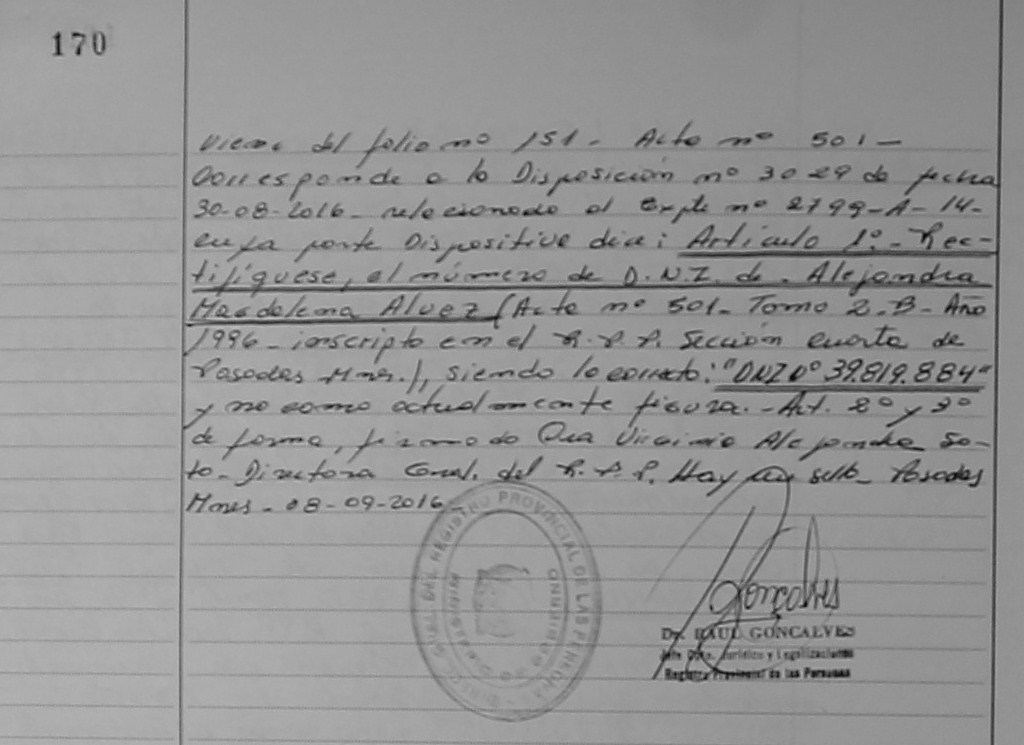 170
Viene del folio nº 151 - Acta nº 501 -
Corresponde a la Disposición nº 3029 de fecha
30-08-2016 - relacionado al Expte nº 2799-A-14-
cuya parte Dispositiva dice: Artículo 1º.- Rec-
tifíquese, el número de D.N.I. de Alejandra
Magdalena Alvez (Acta nº 501 - Tomo 2-B - Año
1996 - inscripto en el R.P.P. Sección cuarta de
Posadas Mnes.), siendo lo correcto: "DNI Nº 39.819.884"
y no como actualmente figura. - Art. 2º y 3º
de forma, firmado Dra Virginia Alejandra So-
to - Directora Gral. del R.P.P. Hay un sello - Posadas
Mnes - 08-09-2016 -
DIREC. GRAL. DEL REGISTRO PROVINCIAL DE LAS PERSONAS
Goncalves
Dr. RAUL GONCALVES
Jefe Dpto. Jurídico y Legalizaciones
Registro Provincial de las Personas